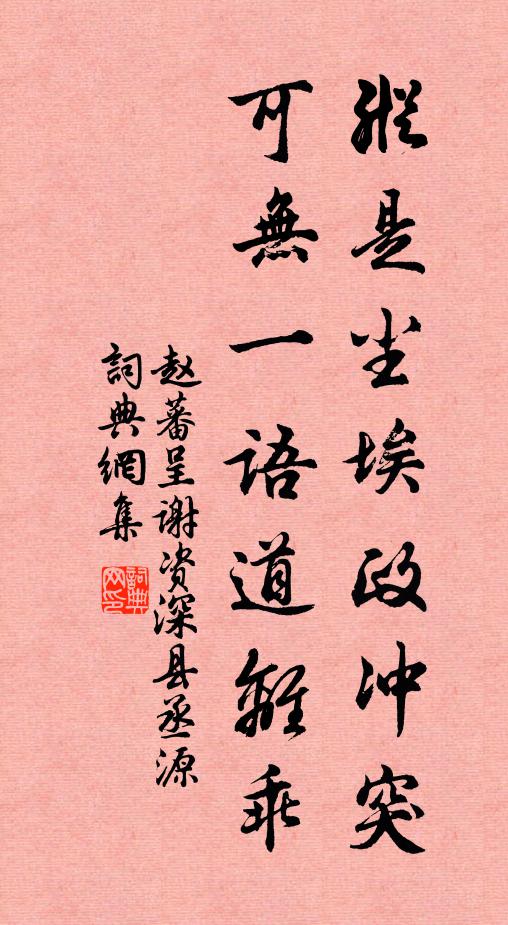 縱是尘埃政冲突
可無一语道離乖
赵蕃呈谢资深县丞源
詞典網集
詞典
网印